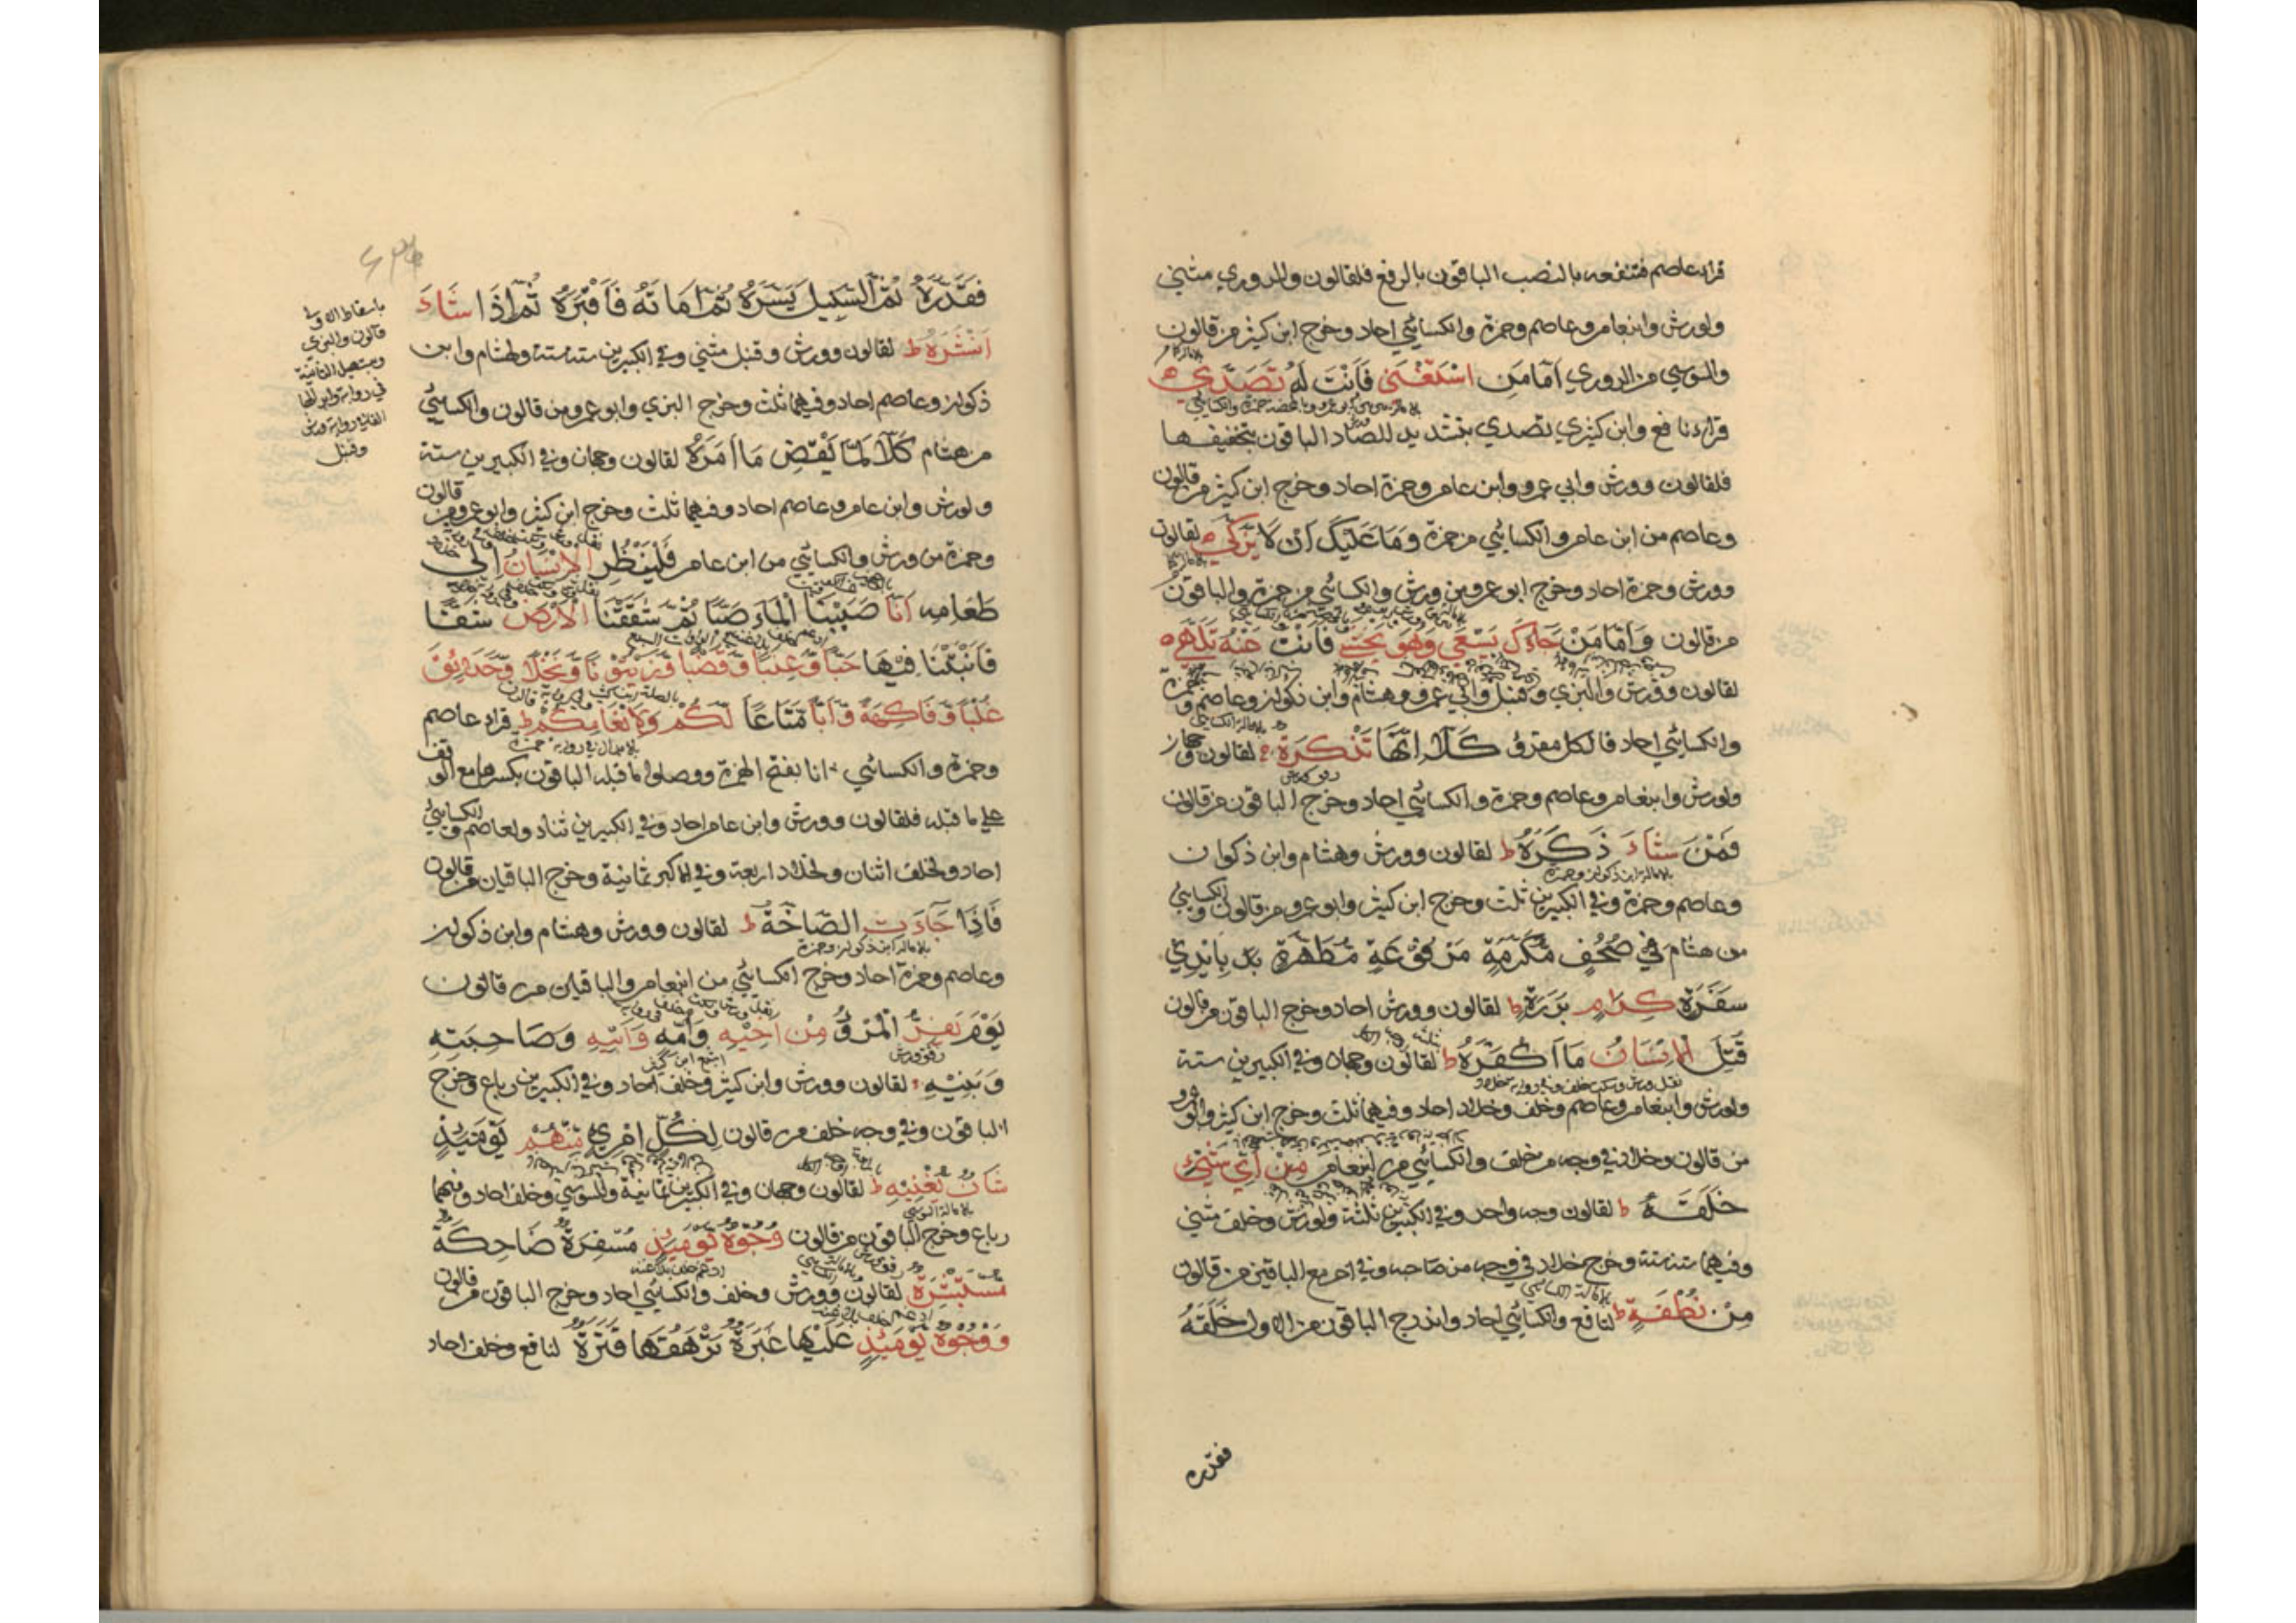 قراء عاصم فتنفعه بالنصب الباقون بالرفع فلقالون وللدوري مثني
ولورش وابنعامر وعاصم وحمزة والكسائي احاد وخرج ابن كثير من قالون
والسوسي من الدوري اَمَّا مَنِ اسْتَغْنَى فَاَنْتَ لَهُ تَصَدَّى
قراء نافع وابن كثير تصدي بتشديد الصاد الباقون بتخفيفها
فلقالون وورش وابي عمرو وابن عامر وحمزة احاد وخرج ابن كثير من قالون
وعاصم من ابن عامر والكسائي من حمزة وَمَا عَلَيْكَ اَنْ لَا يَزَّكَّى لقالون
وورش وحمزة احاد وخرج ابو عمرو من ورش والكسائي من حمزة والباقون
من قالون وَاَمَّا مَنْ جَاءَكَ يَسْعَى وَهُوَ يَخْشَى فَاَنْتَ عَنْهُ تَلَهَّى
لقالون وورش والبزي وقنبل وابي عمرو وهشام وابن ذكوان وعاصم وحمزة
والكسائي احاد فالكل مقرؤ كَلَّا اِنَّهَا تَذْكِرَةٌ لقالون وجهان
ولورش وابنعامر وعاصم وحمزة والكسائي احاد وخرج الباقون من قالون
فَمَنْ شَاءَ ذَكَرَهُ ط لقالون وورش وهشام وابن ذكوان
بالامالة ابن ذكوان وحمزة
وعاصم وحمزة وفي الكبيرين ثلث وخرج ابن كثير وابو عمرو من قالون والكسائي
من هشام فِي صُحُفٍ مُكَرَّمَةٍ مَرْفُوعَةٍ مُطَهَّرَةٍ بِاَيْدِي
سَفَرَةٍ كِرَامٍ بَرَرَةٍ ط لقالون وورش احاد وخرج الباقون من قالون
قُتِلَ الْاِنْسَانُ مَا اَكْفَرَهُ ط لقالون وجهان وفي الكبيرين ستة
ولورش وابنعامر وعاصم وخلف وخلاد احاد وفيهما ثلث وخرج ابن كثير وابو عمرو
من قالون وخلاد في وجه من خلف والكسائي من ابنعامر مِنْ اَيِّ شَيْءٍ
خَلَقَهُ ط لقالون وجه واحد وفي الكبيرين ثلثة ولورش وخلف مثني
وفيهما ستة ستة وخرج خلاد في وجه من صاحبه وفي اخر مع الباقين من قالون
مِنْ نُطْفَةٍ ط لنافع والكسائي احاد واندرج الباقون من الاول خَلَقَهُ
فقدره
فَقَدَّرَهُ ثُمَّ السَّبِيلَ يَسَّرَهُ ثُمَّ اَمَاتَهُ فَاَقْبَرَهُ ثُمَّ اِذَا شَاءَ
اَنْشَرَهُ ط لقالون وورش وقنبل مثني وفي الكبيرين ستة ستة ولهشام وابن
ذكوان وعاصم احاد وفيهما ثلث وخرج البزي وابو عمرو من قالون والكسائي
من هشام كَلَّا لَمَّا يَقْضِ مَا اَمَرَهُ لقالون وجهان وفي الكبيرين ستة
ولورش وابن عامر وعاصم احاد وفيهما ثلث وخرج ابن كثير وابو عمرو من قالون
وحمزة من ورش والكسائي من ابن عامر فَلْيَنْظُرِ الْاِنْسَانُ اِلَى
طَعَامِهِ اَنَّا صَبَبْنَا الْمَاءَ صَبًّا ثُمَّ شَقَقْنَا الْاَرْضَ شَقًّا
فَاَنْبَتْنَا فِيهَا حَبًّا وَعِنَبًا وَقَضْبًا وَزَيْتُونًا وَنَخْلًا وَحَدَائِقَ
غُلْبًا وَفَاكِهَةً وَاَبًّا مَتَاعًا لَكُمْ وَلِاَنْعَامِكُمْ ط قراء عاصم
وحمزة والكسائي انا بفتح الهمزة ووصلوا ما قبله الباقون بكسرها مع الوقف
علي ما قبله فلقالون وورش وابن عامر احاد وفي الكبيرين ثناد ولعاصم والكسائي
احاد ولخلف اثنان ولخلاد اربعة وفي الاكبر ثمانية وخرج الباقيان من قالون
فَاِذَا جَاءَتِ الصَّاخَّةُ ط لقالون وورش وهشام وابن ذكوان
بالامالة ابن ذكوان وحمزة
وعاصم وحمزة احاد وخرج الكسائي من ابنعامر والباقين من قالون
يَوْمَ يَفِرُّ الْمَرْءُ مِنْ اَخِيهِ وَاُمِّهِ وَاَبِيهِ وَصَاحِبَتِهِ
وَبَنِيهِ لقالون وورش وابن كثير وخلف احاد وفي الكبيرين رباع وخرج
الباقون وفي وجه خلف من قالون لِكُلِّ امْرِئٍ مِنْهُمْ يَوْمَئِذٍ
شَاْنٌ يُغْنِيهِ ط لقالون وجهان وفي الكبيرين ثمانية وللسوسي وخلف احاد وفيهما
رباع وخرج الباقون من قالون وُجُوهٌ يَوْمَئِذٍ مُسْفِرَةٌ ضَاحِكَةٌ
مُسْتَبْشِرَةٌ لقالون وورش وخلف والكسائي احاد وخرج الباقون من قالون
وَوُجُوهٌ يَوْمَئِذٍ عَلَيْهَا غَبَرَةٌ تَرْهَقُهَا قَتَرَةٌ لنافع وخلف احاد
باسقاط الاولى
قالون والبزي
وبتسهيل الثانية
في رواية وابدالها
الفا في رواية ورش
وقنبل